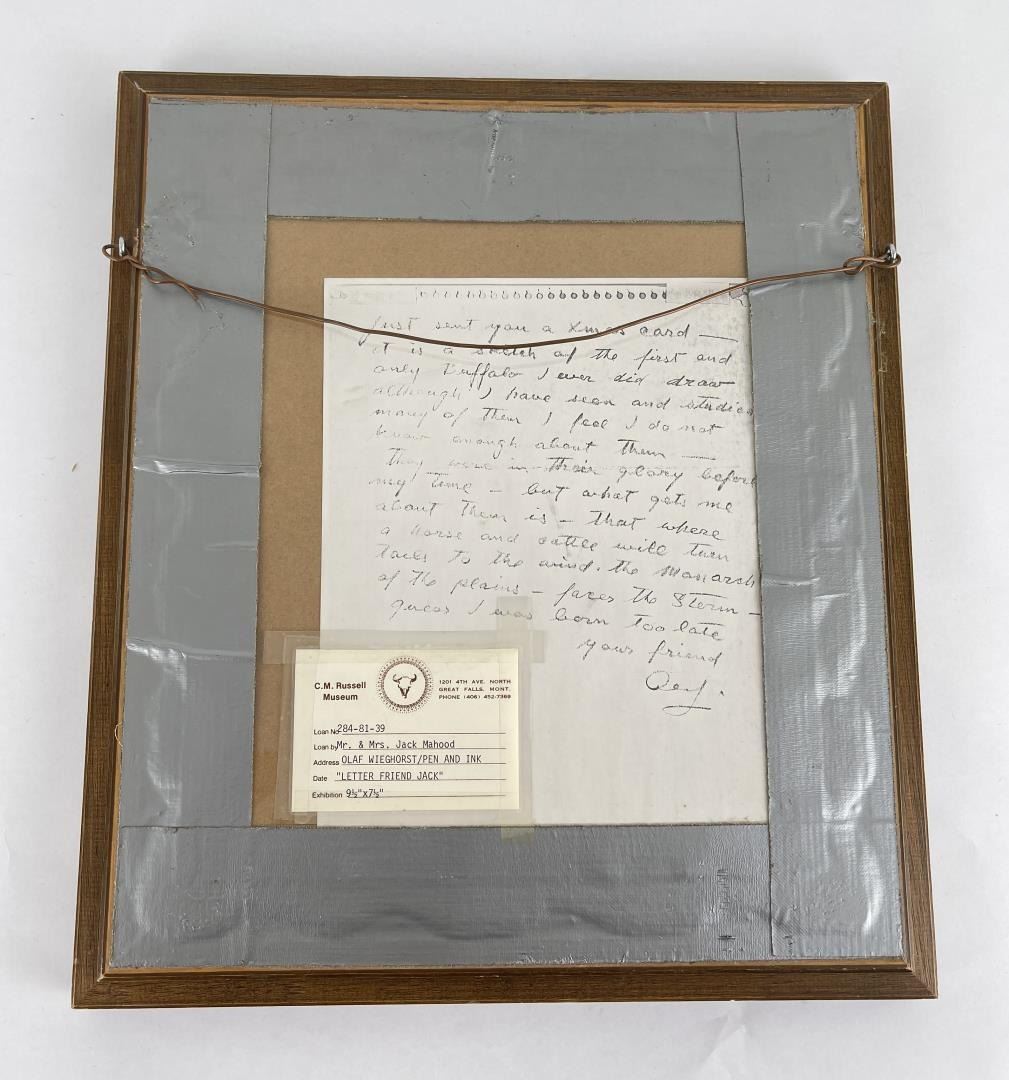 Just sent you a Xmas card —
it is a sketch of the first and
only Buffalo I ever did draw
although I have seen and studied
many of them I feel I do not
know enough about them —
they were in their glory before
my time – but what gets me
about them is – that where
a horse and cattle will turn
tails to the wind. the monarch
of the plains – faces the storm –
guess I was born too late
your friend
Olaf.
C.M. Russell
Museum
1201 4TH AVE. NORTH
GREAT FALLS, MONT.
PHONE (406) 452-7369
Loan No. 284-81-39
Loan by Mr. & Mrs. Jack Mahood
Address OLAF WIEGHORST/PEN AND INK
Date "LETTER FRIEND JACK"
Exhibition 9½"x7½"